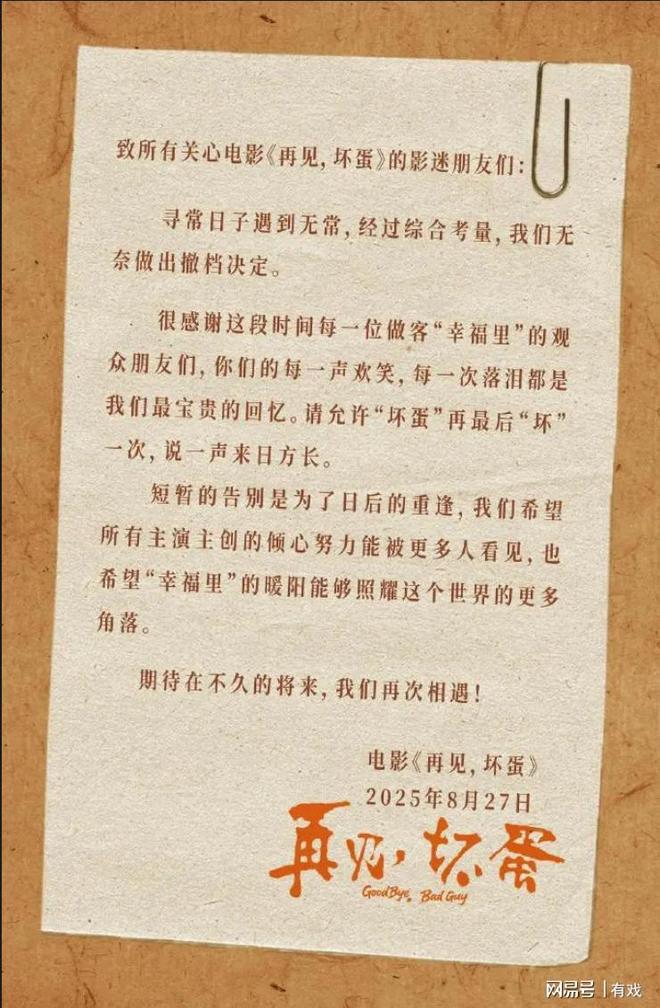 致所有关心电影《再见，坏蛋》的影迷朋友们：
寻常日子遇到无常，经过综合考量，我们无
奈做出撤档决定。
很感谢这段时间每一位做客“幸福里”的观
众朋友们，你们的每一声欢笑，每一次落泪都是
我们最宝贵的回忆。请允许“坏蛋”再最后“坏”
一次，说一声来日方长。
短暂的告别是为了日后的重逢，我们希望
所有主演主创的倾心努力能被更多人看见，也
希望“幸福里”的暖阳能够照耀这个世界的更多
角落。
期待在不久的将来，我们再次相遇！
电影《再见，坏蛋》
2025年8月27日
再见，坏蛋
GoodBye, Bad Guy
网易号 | 有戏